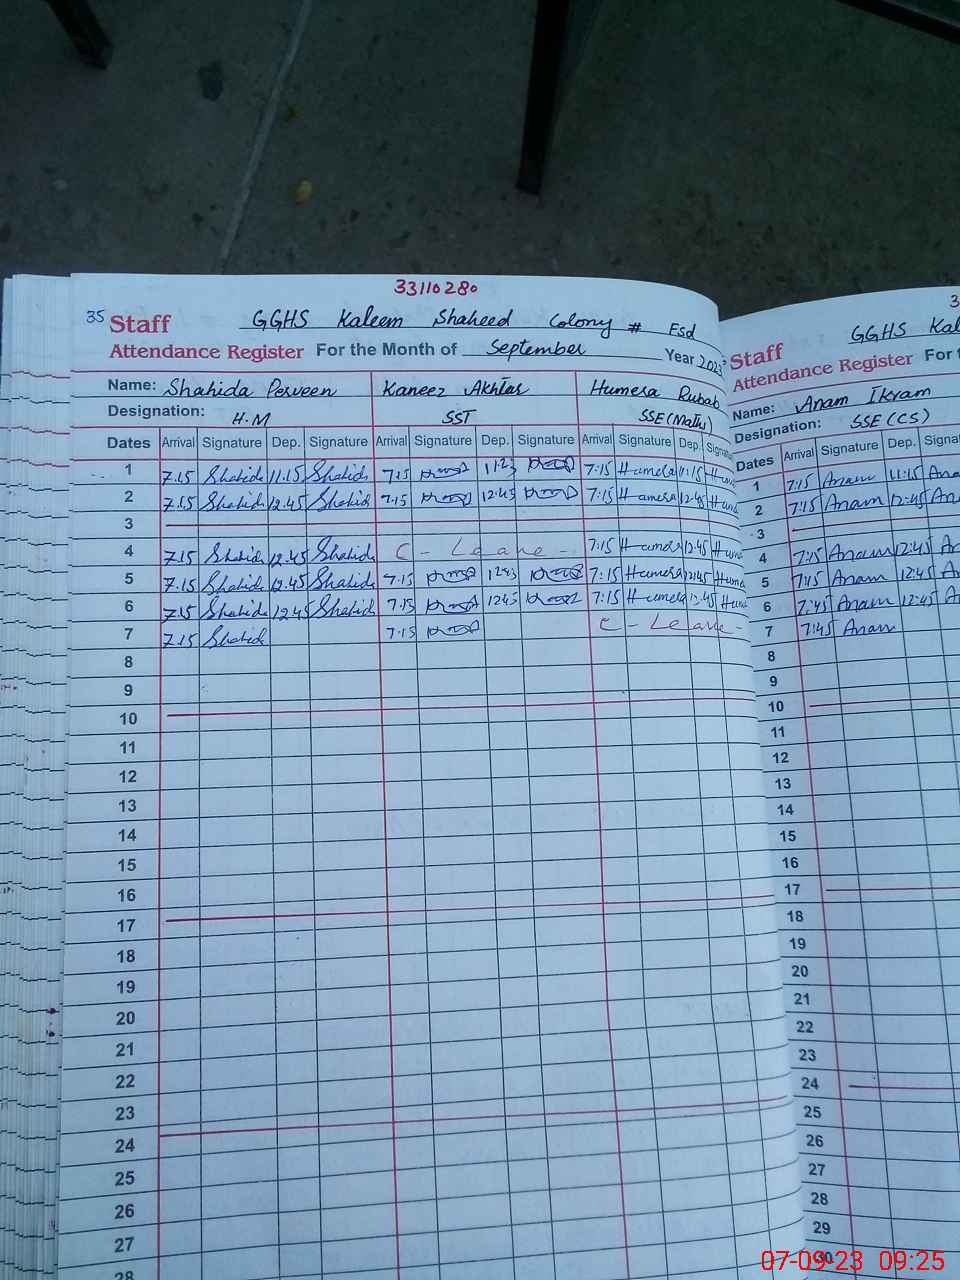 33110280
35 Staff GGHS Kaleem Shaheed Colony # Fsd
Attendance Register For the Month of September Year 2023
Name: Shahida Perveen Kaneez Akhtar Humera Rubab
Designation: H.M SST SSE (Maths)
Dates Arrival Signature Dep. Signature Arrival Signature Dep. Signature Arrival Signature Dep. Signatu
1 7.15 Shahid 11.15 Shahid 7.15 7:15 Humera 11:15 Hum
2 7.15 Shahid 12.45 Shahid 7.15 12:45 7:15 Humera 12:45 Hum
3
4 7.15 Shahid 12.45 Shahid C - Leave - 7:15 Humera 12:45 Hum
5 7.15 Shahid 12.45 Shahid 7.15 7:15 Humera 12:45 Hum
6 7.15 Shahid 12.45 Shahid 7.15 1245 7:15 Humera 12:45 Hum
7 7.15 Shahid 7.15 C - Leave -
8
9
10
11
12
13
14
15
16
17
18
19
20
21
22
23
24
25
26
27
28
3
Staff GGHS Kal
Attendance Register For t
Name: Anam Ikram
Designation: SSE (CS)
Dates Arrival Signature Dep. Signa
1 7:15 Anam 11:15 Ana
2 7:15 Anam 12:45 An
3
4 7:15 Anam 12:45 An
5 Anam 12:45 A
6 7:45 Anam 12:45 A
7 7:45 Anam
8
9
10
11
12
13
14
15
16
17
18
19
20
21
22
23
24
25
26
27
28
29
30
07-09-23 09:25